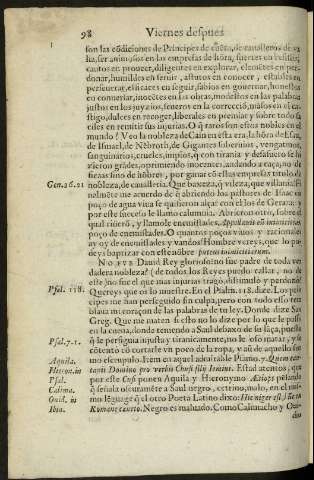 98 Viernes despues
son las cõdiciones de Principes de cuẽta, de cavalleros de
lustre, ser animosos en las empresas de hõra, fuertes en resistir,
cautos en proveer, diligentes en explorar, clemẽtes en per-
donar, humildes en servir, astutos en conocer, estables en
perseverar, eficaces en seguir, sabios en governar, honestos
en conversar, inocẽtes en la vida, modelos en las palabras,
justos en los juyzios, severos en la correcciõ, misos en el cas-
tigo, dulces en recoger, liberales en premiar y sobre todo
en remitir sus injurias. O que raros son estos nobles en el
mundo! Veo la nobleza de Cain en esta era, la hõra de Esau,
de Ismael, de Nẽbroth, de Gigantes sobervios, vengativos,
sanguinarios, crueles, impios, que con tirania y
grades, oprimiendo inocentes, andando a caça, no de
fieras sino de hõbres, por ganar cõ estas empresas titulo de
Gen. 26. 21 nobleza, de cavalleria. Que baxeza, que vileza, que villania? Fi-
nalmẽte me acuerdo de que abriendo los pastores de Isaac
poço de agua viva se que quisieron alçar con el los de Gerara: y
por este sucesso le llamo calumnia. Abrieron otro, sobre el
qual riñerõ, y llamole enemistades. Appellavit eũ inimicitias,
poço de enemistades. O quantos poços ay vivos y racionales
ay oy de enemistades y vandos! Hombre vereys, que lo po-
deys baptizar con este nõbre puteus inimicitiarum.
No fue David Rey glorioso: no fue padre de toda ver-
dadera nobleza? (de todos los Reyes puedo callar, no de
este) no fue el que mas injurias tragò, dissimulò y perdonò?
Psal. 118. Quereys que os lo muestre. En el Psalm. 118. dize. Los prin-
cipes me han perseguido sin culpa, pero con todo esso tem-
blava mi coraçon de las palabras de tu ley. Donde dize San
Greg. Que me maten si esto no lo dize por lo que le passò
en la cueva, donde teniendo a Saul debaxo de su laça, puesto
Psal. 7. 1. que le perseguia injusta y tiranicamente, no le oso matar, y se
cõtentò cõ cortarle un poco de la ropa, y aũ de aquello
mo escrupulo. Item en aquel admirable Psalmo. 7. Quem can-
Aquila. tavit Domino pro verbis Chusi filij Iemini. Estad atentos, que
Hieron. in por este Cusi ponen Aquila y Hieronymo Aetiops
Psal. que señala oscuramẽte a Saul negro, cetrino, malo, en el mis-
Calima. mo lẽguage que el otro Poeta Latino dixo: Hic niger est, hũc tu
Ovid. in Romane caveto. Negro es malvado. Como Calimacho y Ovi-
Ibin.
dio